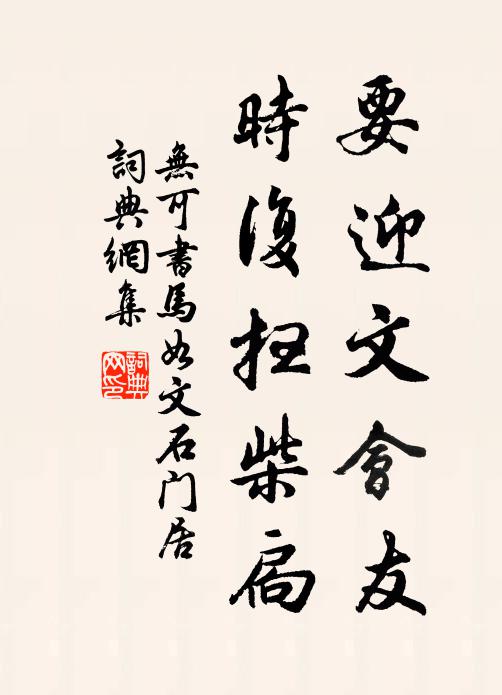 要迎文會友
時復扫柴扃
無可書馬如文石门居
詞典網集
詞典网印